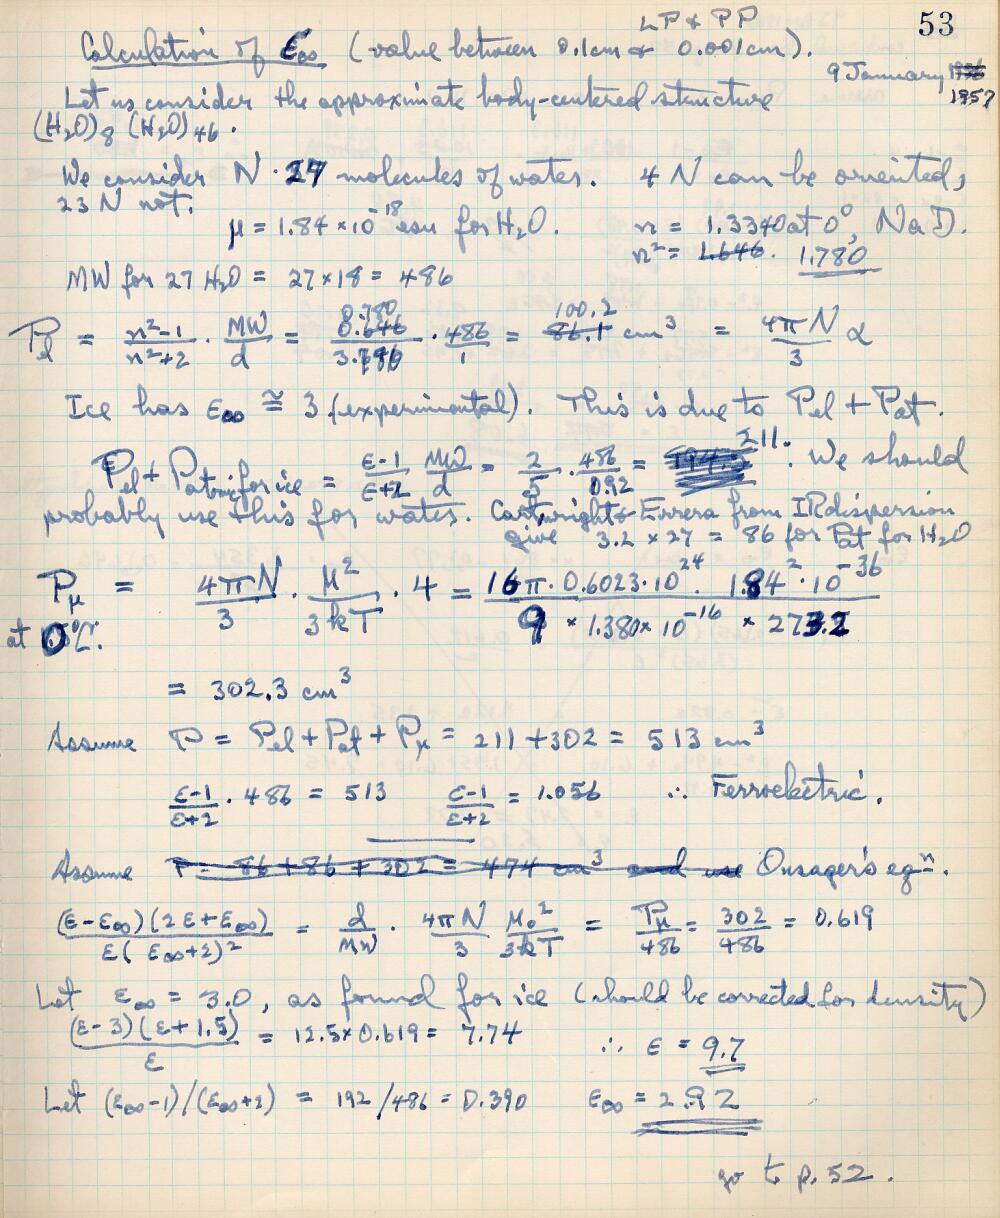 LP & PP
53
Calculation of ε∞ (value between 0.1cm & 0.001cm).
9 January 1956
1957
Let us consider the approximate body-centered structure
(H₂O)₈ (H₂O)₄₆.
We consider N · 27 molecules of water. 4 N can be oriented,
23 N not.
μ = 1.84 × 10⁻¹⁸ esu for H₂O. n = 1.3340 at 0°, Na D.
n² = 1.646. 1.780
MW for 27 H₂O = 27 × 18 = 486
0.780 100.2
Pel = (n²-1)/(n²+2) · MW/d = 0.646/3.780 · 486/1 = 86.1 cm³ = 4πN/3 α
Ice has ε∞ ≅ 3 (experimental). This is due to Pel + Pat.
211.
Pel + Patomic for ice = (ε-1)/(ε+2) MW/d = 2/5 · 486/0.92 = 194.5. We should
probably use this for water. Cartwright & Errera from IR dispersion
give 3.2 × 27 = 86 for Pat for H₂O
Pμ = 4πN/3 · μ²/3kT · 4 = (16π · 0.6023 · 10²⁴ · 1.84² · 10⁻³⁶)/(9 × 1.380 × 10⁻¹⁶ × 273.2)
at 0°C.
= 302.3 cm³
Assume P = Pel + Pat + Pμ = 211 + 302 = 513 cm³
(ε-1)/(ε+2) · 486 = 513 (ε-1)/(ε+2) = 1.056 ∴ Ferroelectric.
Assume P = 86 + 86 + 302 = 474 cm³ and use Onsager's eqⁿ.
(ε-ε∞)(2ε+ε∞)/(ε(ε∞+2)²) = d/MW · 4πN/3 μ₀²/3kT = Pμ/486 = 302/486 = 0.619
Let ε∞ = 3.0, as found for ice (should be corrected for density)
(ε-3)(ε+1.5)/ε = 12.5 × 0.619 = 7.74 ∴ ε = 9.7
Let (ε∞-1)/(ε∞+2) = 192/486 = 0.390 ε∞ = 2.92
go to p. 52.